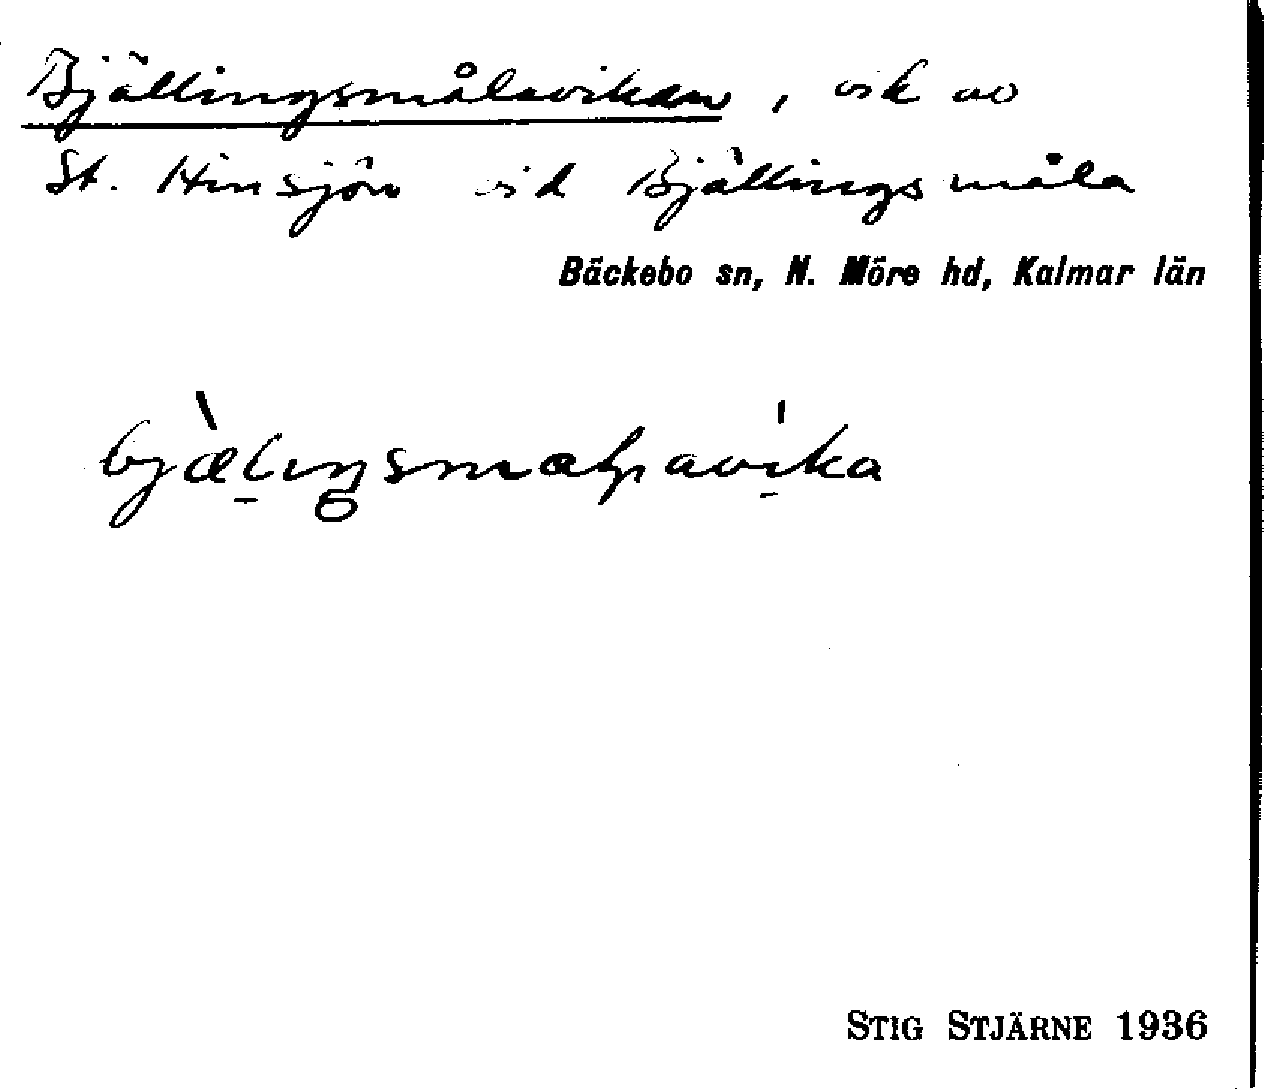 Bjällingsmålavikan, vik av
St. Hinsjön vid Bjällingsmåla
Bäckebo sn, N. Möre hd, Kalmar län
STIG STJÄRNE 1936